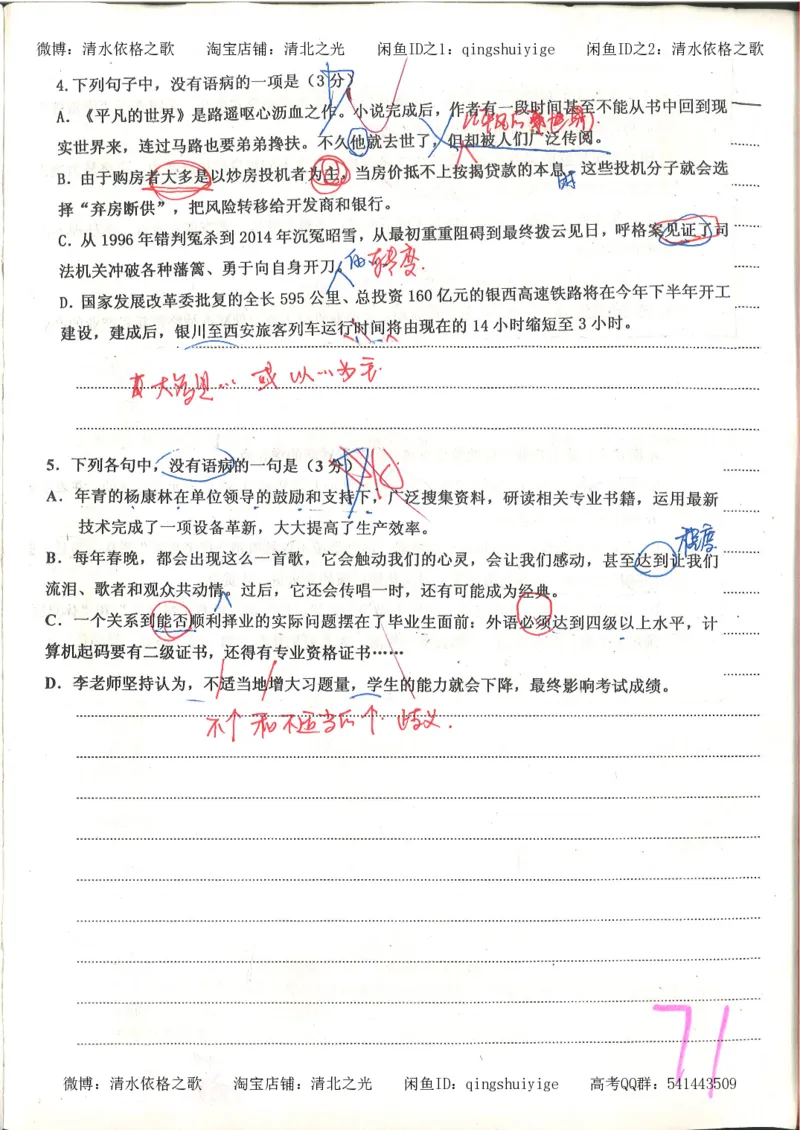 微博：清水依格之歌 淘宝店铺：清北之光 闲鱼ID之1：qingshuiyige 闲鱼ID之2：清水依格之歌
4.下列句子中，没有语病的一项是（3分）
A．《平凡的世界》是路遥呕心沥血之作。小说完成后，作者有一段时间甚至不能从书中回到现
实世界来，连过马路也要弟弟搀扶。不久他就去世了，但却被人们广泛传阅。
B．由于购房者大多是以炒房投机者为主。当房价抵不上按揭贷款的本息，这些投机分子就会选
时
择“弃房断供”，把风险转移给开发商和银行。
C．从1996年错判冤杀到2014年沉冤昭雪，从最初重重阻碍到最终拨云见日，呼格案见证了司
法机关冲破各种藩篱、勇于向自身开刀。
的转变.
D．国家发展改革委批复的全长595公里、总投资160亿元的银西高速铁路将在今年下半年开工
建设，建成后，银川至西安旅客列车运行时间将由现在的14小时缩短至3小时。
大多是… 或 以…为主.
5．下列各句中，没有语病的一句是（3分）
A．年青的杨康林在单位领导的鼓励和支持下，广泛搜集资料，研读相关专业书籍，运用最新
技术完成了一项设备革新，大大提高了生产效率。
程度
B．每年春晚，都会出现这么一首歌，它会触动我们的心灵，会让我们感动，甚至达到让我们
流泪、歌者和观众共动情。过后，它还会传唱一时，还有可能成为经典。
C．一个关系到能否顺利择业的实际问题摆在了毕业生面前：外语必须达到四级以上水平，计
算机起码要有二级证书，还得有专业资格证书……
D．李老师坚持认为，不适当地增大习题量，学生的能力就会下降，最终影响考试成绩。
不个和不适当后个 歧义.
71
微博：清水依格之歌 淘宝店铺：清北之光 闲鱼ID：qingshuiyige 高考QQ群：541443509